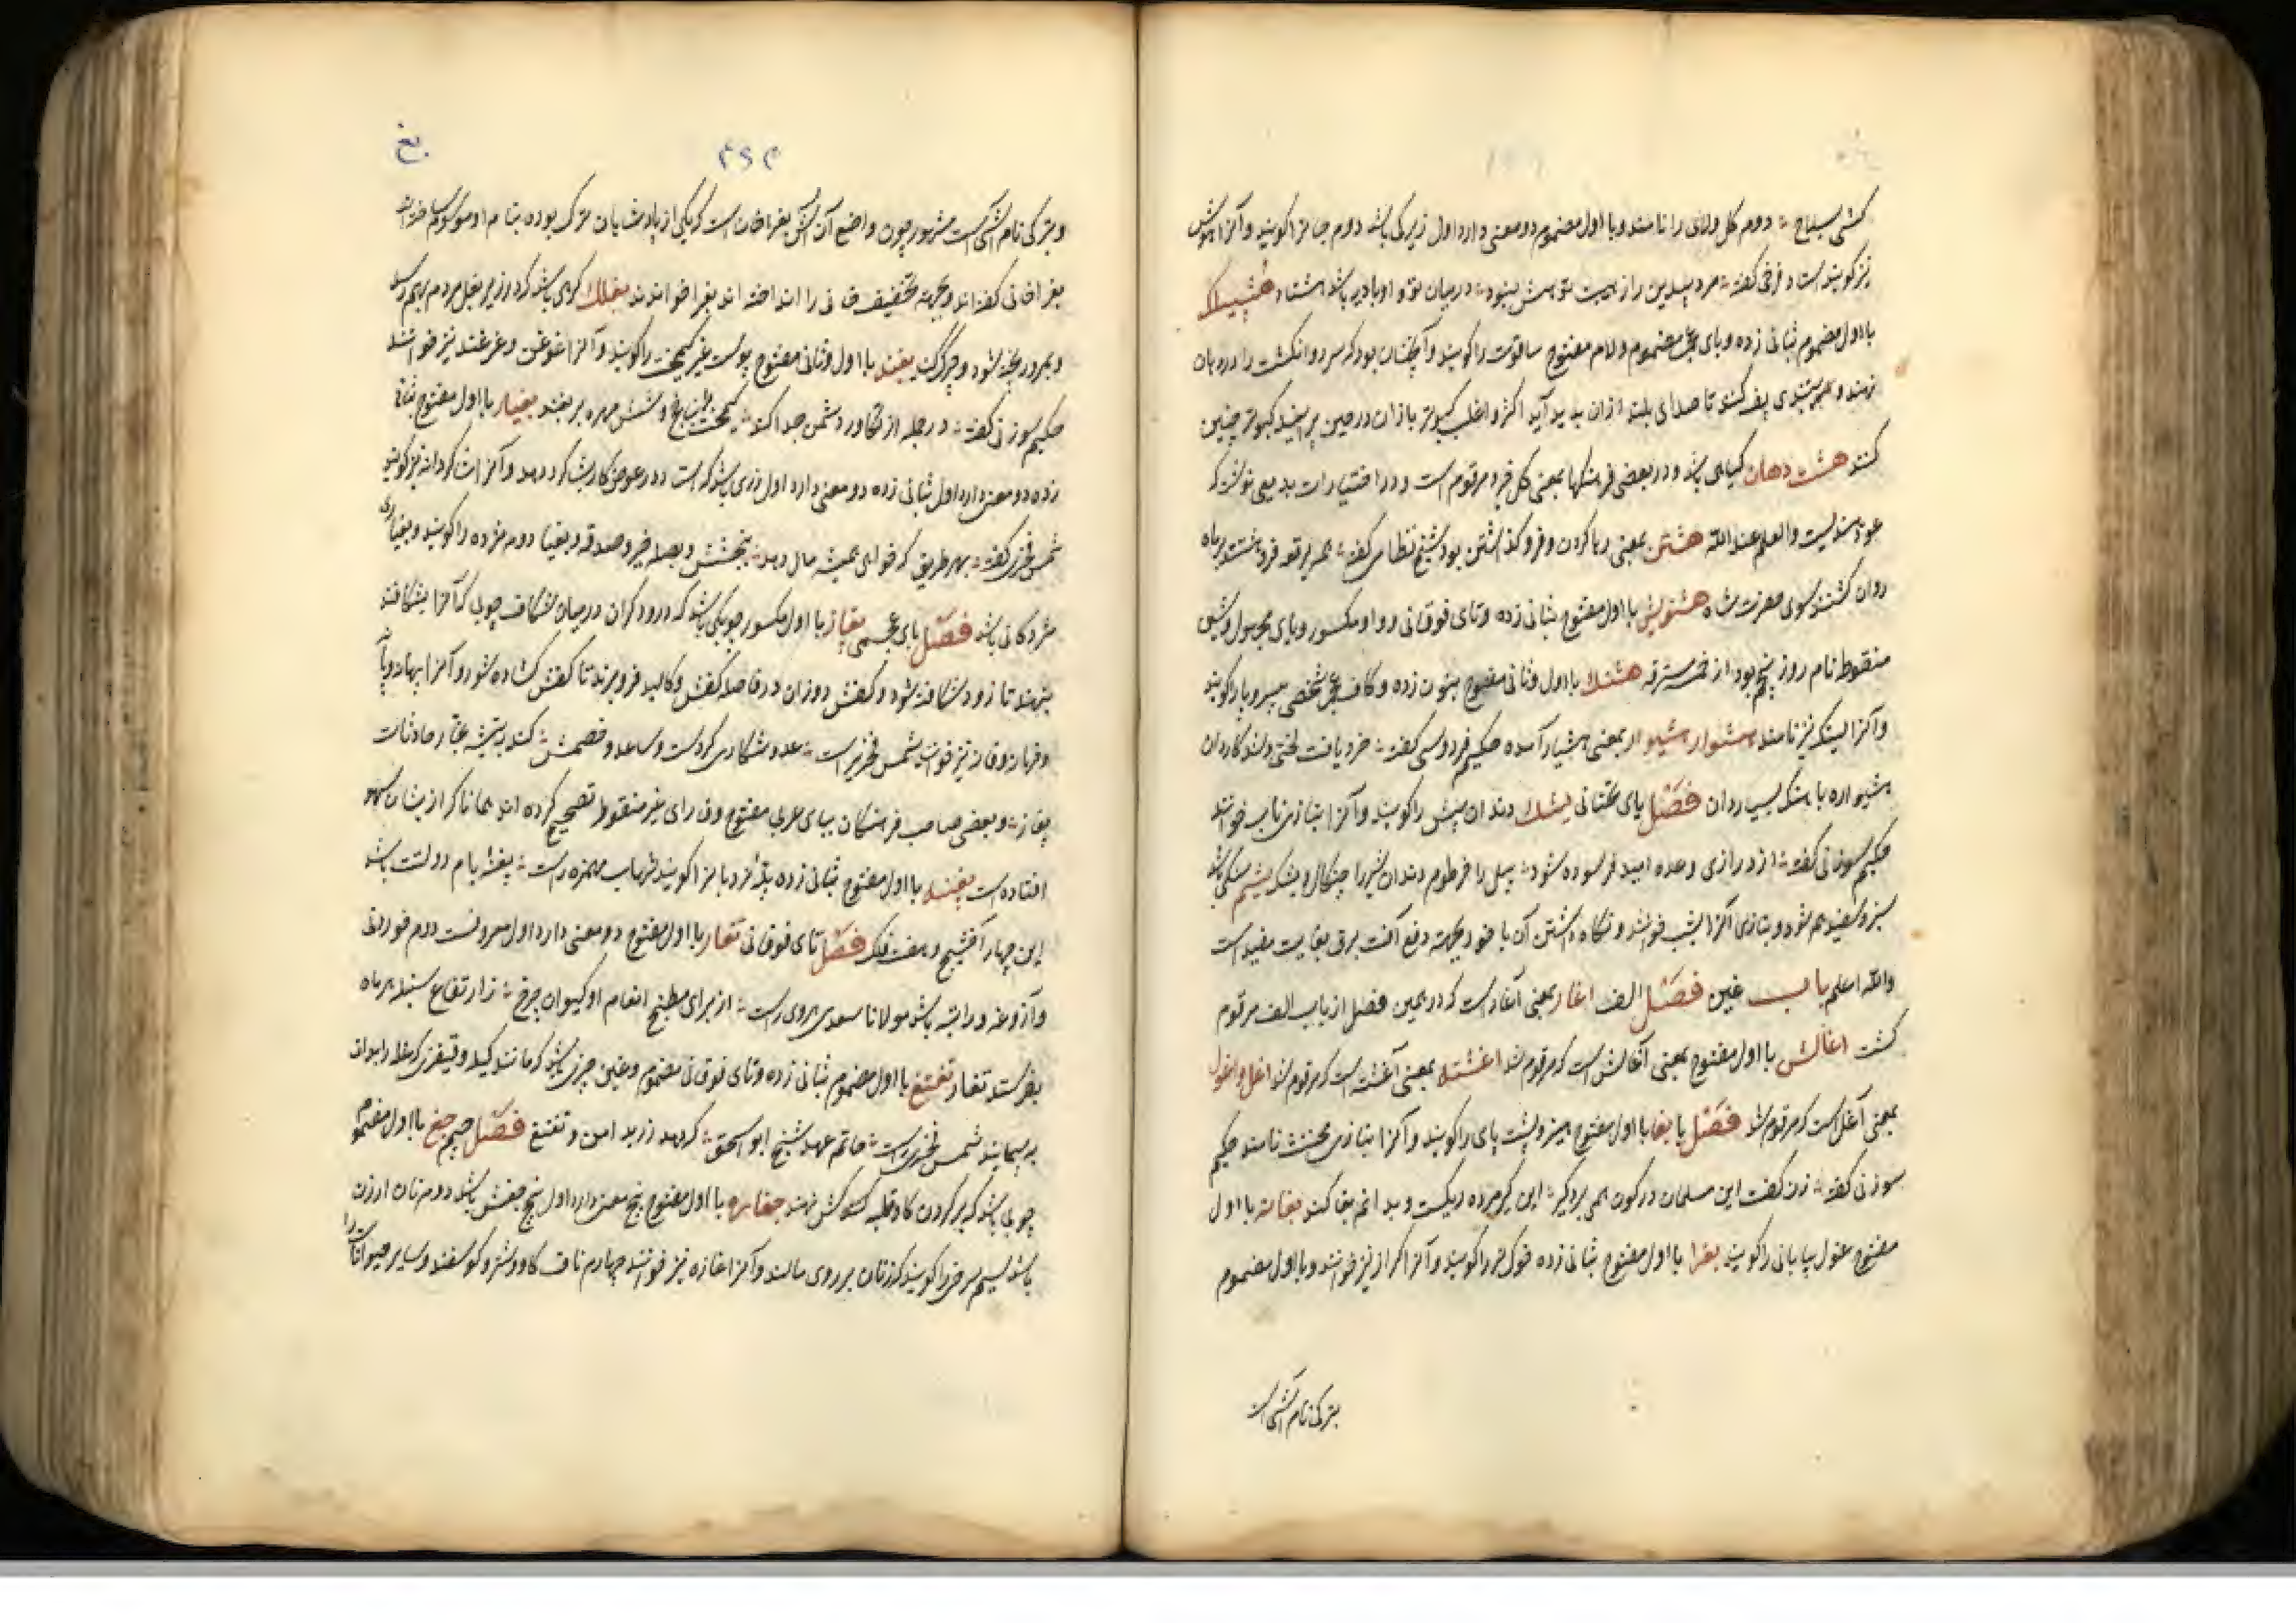 کشتی بسلاح دوم کل ولای را نامند و با اول مضموم دو معنی دارد اول زیرکی باشد دوم جانرا کویند و آنرا هوش
نیز کویند است د فرخی کفته مرد بیدین را ز هیبت تو هش بنود درمیان تو و او بادیه باشد هشتاد هشپلک
با اول مضموم بثانی زده و بای عجمی مضموم و لام مفتوح سافوت را کویند و آنچنان بود که سر دو انکشت را در دهان
نهند و بعبر پف کنند تا صدای بلند ازان پدید آید اکثر و اغلب کبوتر بازان در حین پرانیدن کبوتر چنین
کنند هشت دهان کیاهی باشد و در بعضی فرهنکها بمعنی کل خیرو مرقوم است و در اختیارات بدیعی نوشته که
عود هندیست والعلم عند الله هشتن بمعنی رها کردن و فرو کذاشتن بود شیخ نظامی کفته برقع فرو هشتند بر ماه
روان کشتند سوی حضرت شاه هشتویش با اول مفتوح بثانی زده و تای فوقانی و واو مکسور و یای مجهول و شین
منقوط نام روز پنجم بود از خمسه مسترقه هشنک با اول و ثانی مفتوح بنون زده و کاف عجمی شخصی بی سر و پا را کویند
و آنرا لیتک نیز نامند هشوار هشیوار بمعنی هشیار آمده حکیم فردوسی کفته خرد یافت لختی و شد کاردان
هشیواره با سنک بسیار دان فصل یای تحتانی یشک دندان پیش را کویند و آنرا بتازی ناب خوانند
حکیم سوزنی کفته از درازی وعده امید فرسوده شود پیل را خرطوم و دندان شیر را چنکال و یشک یشم سنکی باشد
سبز و سفید هم شود و بتازی آنرا یشب خوانند و نکاه داشتن آن با خود بجهت دفع آفت برق بغایت مفید است
والله اعلم باب غین فصل الف اغار بمعنی آغار است که در همین فصل از باب الف مرقوم
کشت اغالش با اول مفتوح بمعنی آغالش است که مرقوم شد اغشته بمعنی آغشته است که مرقوم شد اغل و اغول
بمعنی آغل است که مرقوم شد فصل با بغا با اول مفتوح هیز و پشت پای را کویند و آنرا بتازی مخنث نامند حکیم
سوزنی کفته زن کفت این مسلمان در کون همی برد کیر این کیر مرده ریکست و بد انم بغا کند بغامه با اول
مفتوح غول بیابانی را کویند بغرا با اول مفتوح بثانی زده خوک نر را کویند و آنرا کراز نیز خوانند و با اول مضموم
بترکی نام آشی است
بغ
۴۶۳
و بترکی نام آشی است مشهور چون واضع آن آش بغراخان است که یکی از پادشاهان ترک بوده بنام او موسوم ساخته اند
بغراخانی کفته اند و بجهت تخفیف خانی را انداخته اند بغرا خوانند بغلک کرهی باشد که در زیر بغل مردم بهم رسد
و بمرور پخته شود و چرک کند بغند با اول و ثانی مفتوح پوست غیر کیمخت را کویند و آنرا غرغن و غرغند نیز خوانند
حکیم سوزنی کفته در حله از تکاور دشمن جدا کند کیمخت و شش مهره بر بغند بغیاز با اول مفتوح بثانی
زده دو معنی دارد اول زری باشد که استاد در عوض کار بشاکرد دهد و آنرا شاکردانه نیز کویند
شمس فخری کفته بهر طریق که خواهی همیشه مال دهد ببخشش و بصله خیر و صدقه و بغیاز دوم مژده را کویند و بغیازی
مژدکانی باشد فصل بای عجمی پغاز با اول مکسور چوبکی باشد که درودکران در میان شکاف چوبی که آنرا بشکافند
بنهند تا زود شکافته شود و کفش دوزان در فاصله کفش و کالبد فرو برند تا کفش کشاده شود و آنرا پهانه
و فهانه و فانه نیز خوانند شمس فخری راست عدو شکاری کز دست و ساعد و خصمش کند به تیشه غبار حادثات
پغاز و بعضی صاحب فرهنکان ببای عربی مفتوح و رای غیر منقوط تصحیح کرده اند همانا که از ایشان سهو
افتاده است پغنه با اول مفتوح بثانی زده پله نردبانرا کویند شهاب مهمره راست پغنه بام دولتت باشد
این چهار آخشیج و هفت فلک فصل تای فوقانی تغار با اول مفتوح دو معنی دارد اول معروفست دوم خوردنی
و آزوغه و راتبه باشد مولانا سعدی هروی راست از برای مطبخ انعام او کیوان چرخ از ارتفاع سنبله هر ماه
بفرستد تغار تغتغ با اول مضموم بثانی زده و تای فوقانی مضموم و غین چیزی باشد که مانند کیله و قفیز که غله را بدان
بپیمایند شمس فخری راست حاتم عهد شیخ ابواسحق که دهد زر بدامن و تغتغ فصل جیم جغ با اول مضموم
چوبی باشد که بر کردن کاو قلبه کش نهند جغاره با اول مفتوح پنج معنی دارد اول پنج جغش باشد دوم نان ارزن
باشد سیم سرخی را کویند که زنان بر روی مالند و آنرا غازه نیز خوانند چهارم ناف کاو و شتر و کوسفند و سایر حیوانات را